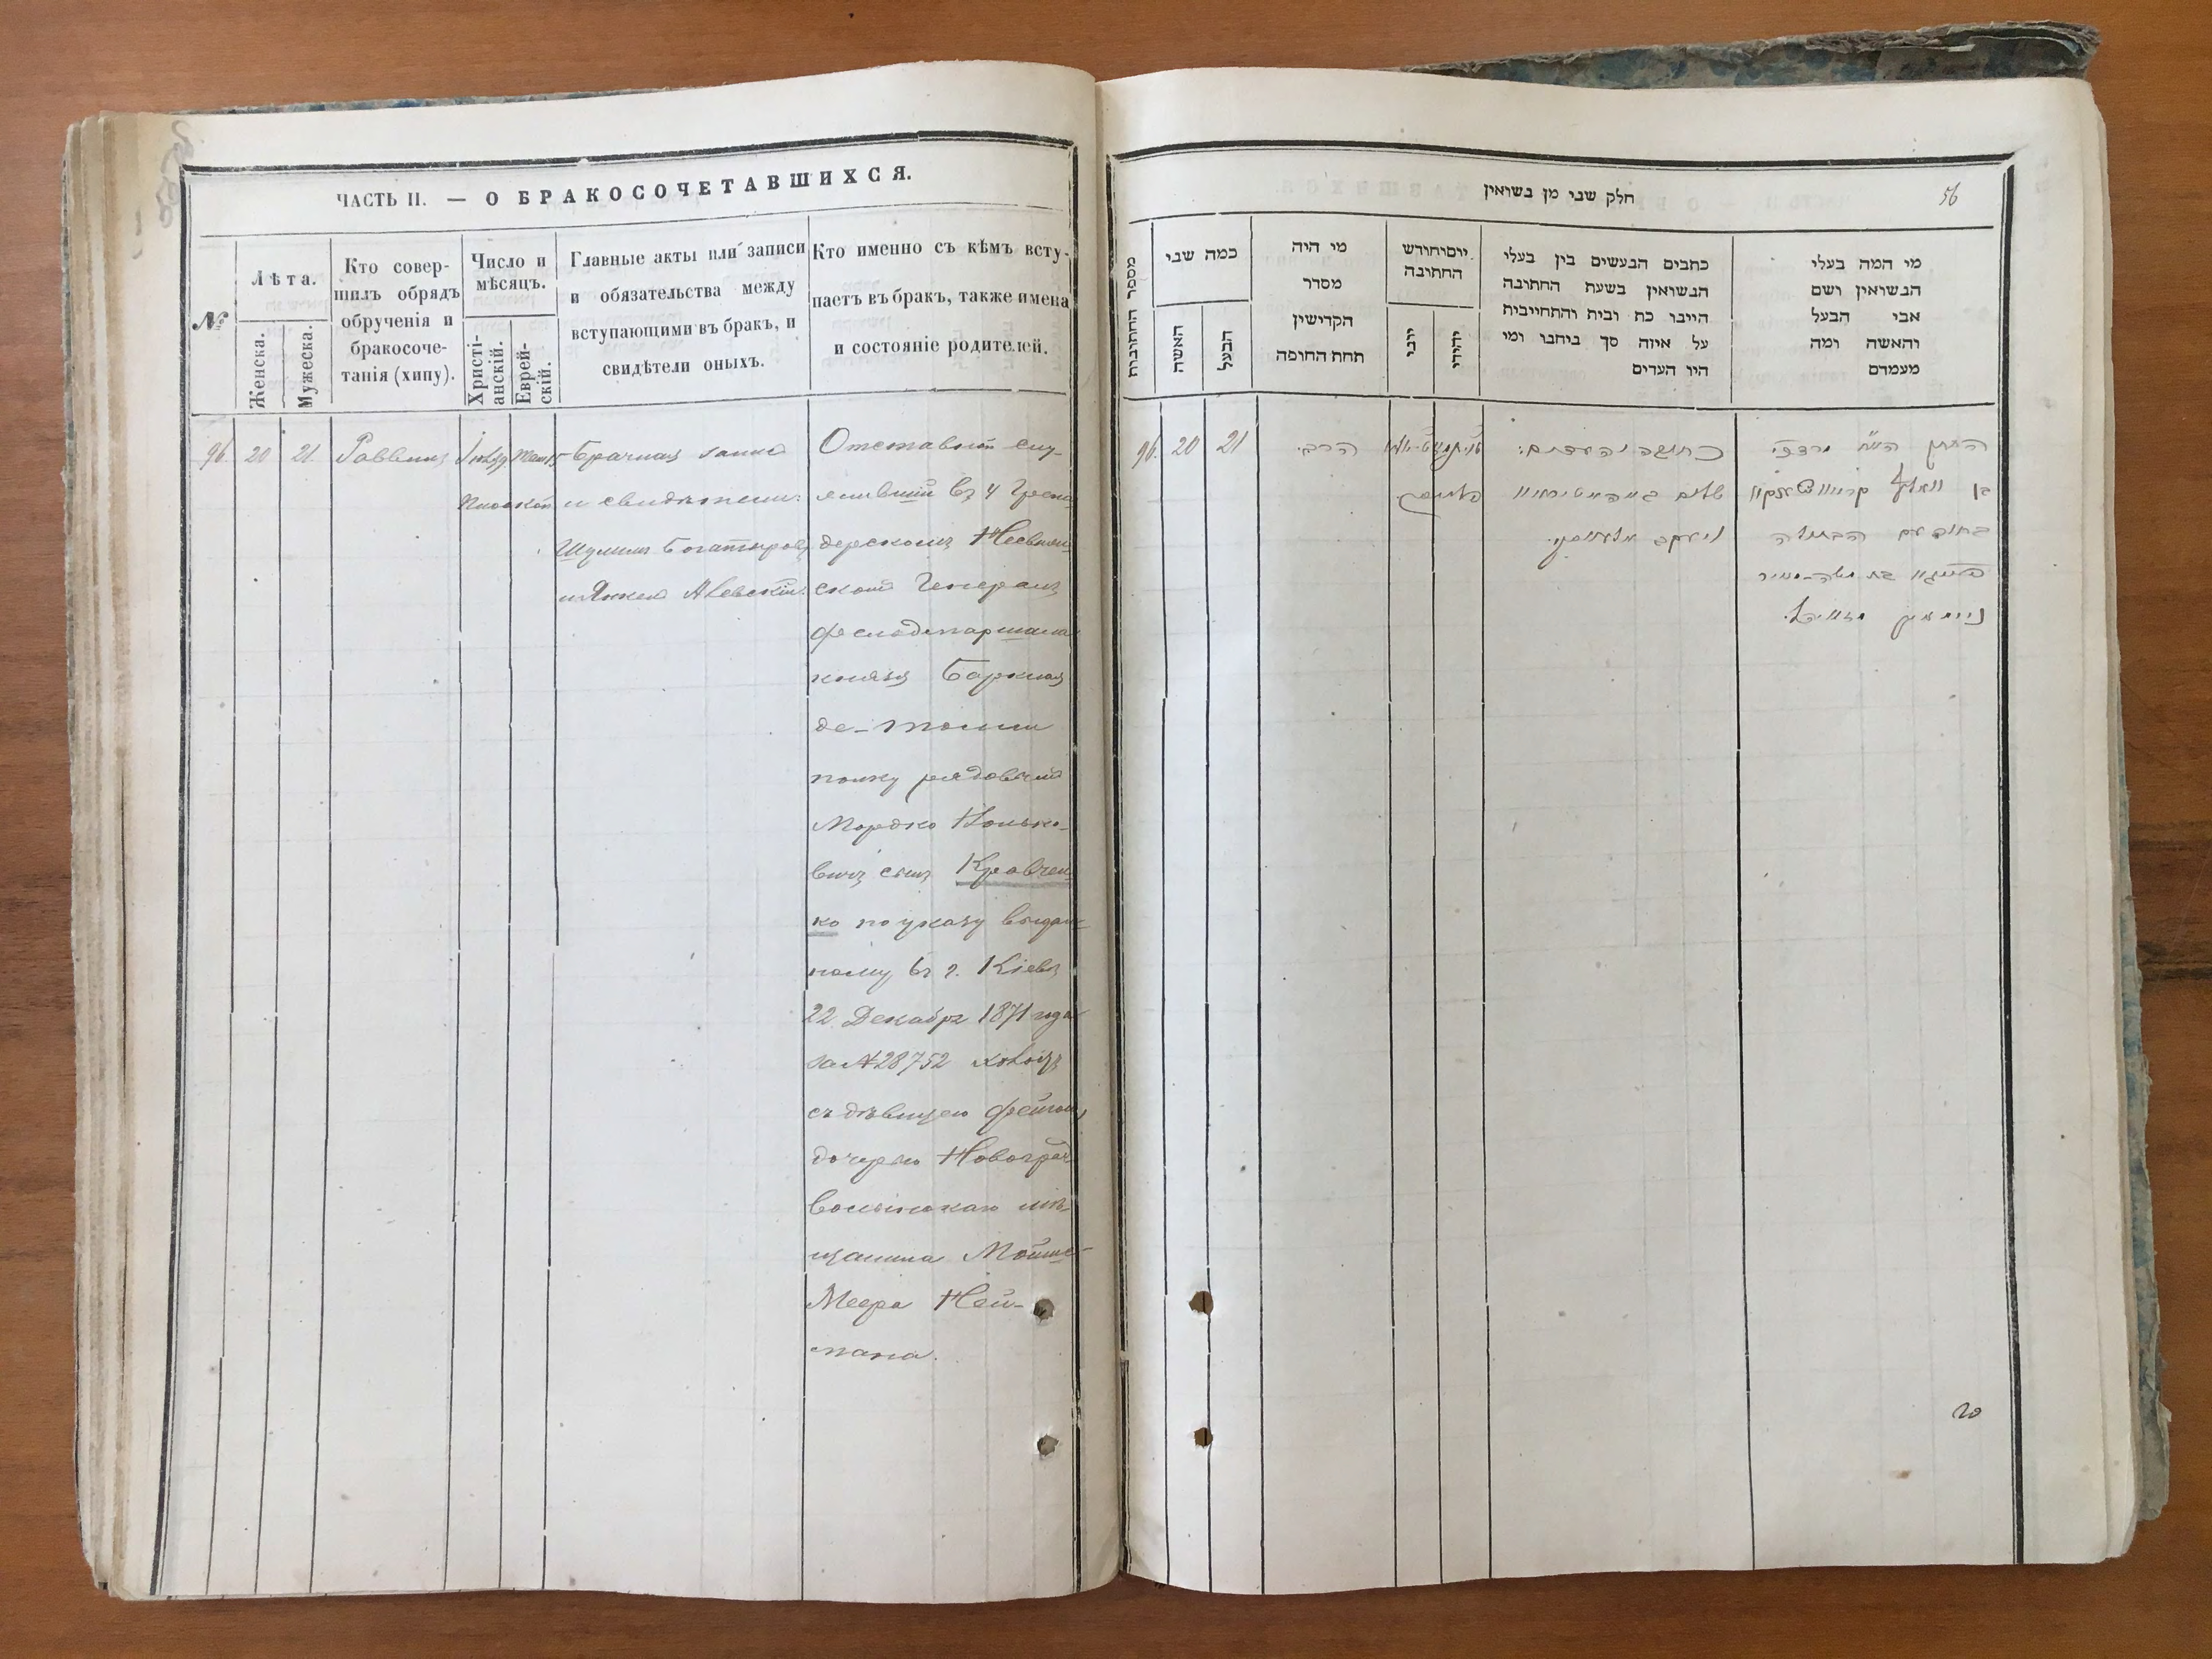 ЧАСТЬ II. — О БРАКОСОЧЕТАВШИХСЯ.
№
Лѣта.
Женска.
Мужеска.
Кто совер-
шилъ обрядъ
обрученія и
бракосоче-
танія (хипу).
Число и
мѣсяцъ.
Христі-
анскій.
Еврей-
скій.
Главные акты или записи
и обязательства между
вступающими въ бракъ, и
свидѣтели оныхъ.
Кто именно съ кѣмъ всту-
паетъ въ бракъ, также имена
и состояніе родителей.
96.
20
21.
Раввинъ
Брачная запись
и свидѣтели:
Шулимъ Богатыровъ
и Янкель
Отставной слу-
жившій въ 4 Грена
дерскомъ Несвиж-
скомъ Генералъ
фельдмаршала
князя Барклая
де-Толли
полку рядовой
Мордко Волько-
вичъ сынъ Кравчен-
ко по указу выдан-
ному въ г. Кіевѣ
22 Декабря 1871 года
за №28752
съ дѣвицею Фейгою
дочерью Новоград
волынскаго мѣ-
щанина Мойше-
Меера Ней-
мана.
חלק שני מן נשואין
56
מספר החתונות
כמה שני
האשה
הבעל
מי היה
מסדר
הקדישין
תחת החופה
יום וחודש
החתונה
יוני
יהודי
כתבים הנעשים בין בעלי
הנשואין בשעת החתונה
היינו כת ובית והתחייבות
על איזה סך ביחבו ומי
היו העדים
מי המה בעלי
הנשואין ושם
אבי הבעל
והאשה ומה
מעמדם
96.
20
21
הרב.
כתובה והעדים:
שלום
ויעקב
החתן
בן וואלף קראווטשענקו
בחור עם הבתולה
פייגא בת משה-מאיר
ניימאן
20